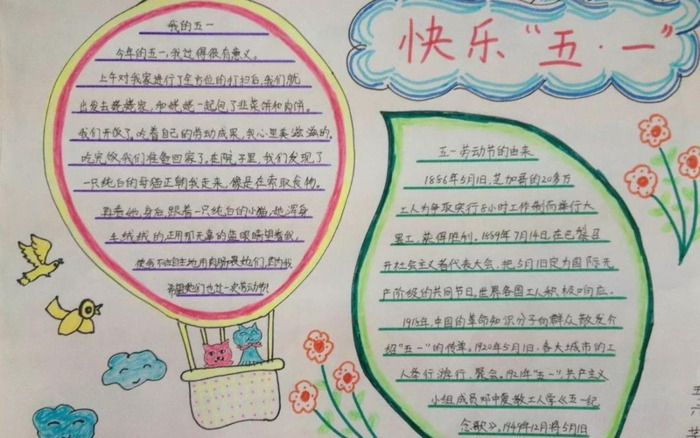 快乐“五·一”
我的五一
今年的五一,我过得很有意义。
上午对我家进行了全方位的打扫后,我们就
出发去姥姥家,和姥姥一起包了韭菜饼和肉饼。
我们开饭了。吃着自己的劳动成果,我心里美滋滋的。
吃完饭,我们准备回家了。在院子里,我们发现了
一只纯白的母猫正朝我走来,像是在索取食物。
再看她身后,跟着一只纯白的小猫,她浑身
毛绒绒的,正用那无辜的蓝眼睛望着我。
使我不由自主地用肉肠喂她们,因为我
希望她们也过一次劳动节!
五一劳动节的由来
1856年5月1日,芝加哥的20多万
工人为争取实行8小时工作制而举行大
罢工,获得胜利。1889年7月14日,在巴黎召
开社会主义者代表大会,把5月1日定为国际无
产阶级的共同节日。世界各国工人积极响应。
1918年,中国的革命知识分子向群众散发介
绍“五一”的传单。1920年5月1日,各大城市的工
人举行游行、聚会。1921年“五一”,共产主义
小组成员邓中夏教工人学《五一纪
念歌》。1949年12月将5月1日
五
六